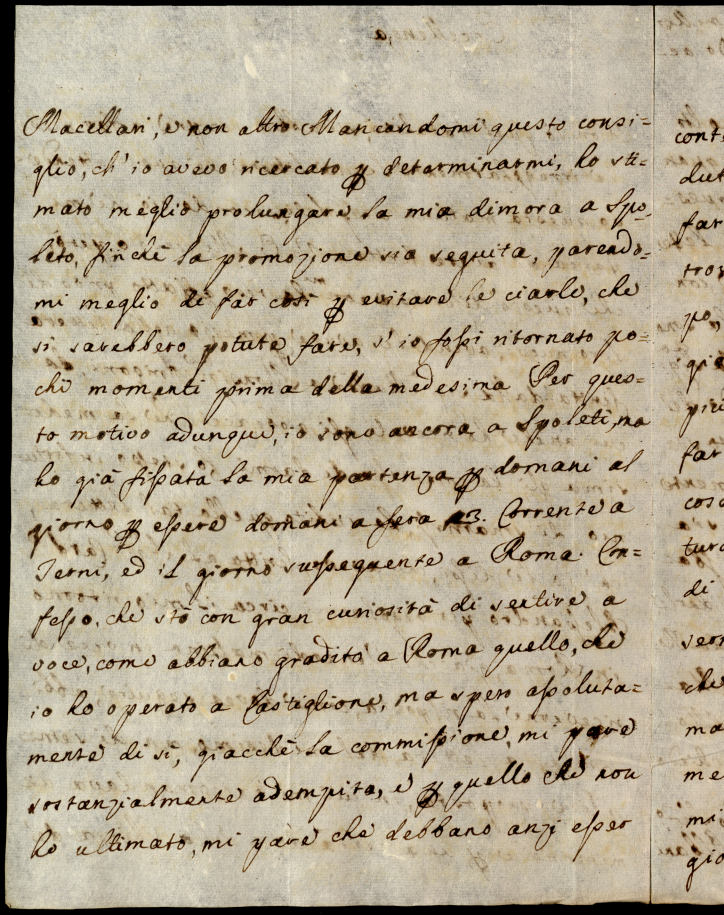 Macellari, e non altro. Mancandomi questo consi=
glio, ch'io avevo ricercato p determinarmi, ho sti=
mato meglio prolungare la mia dimora a Spo=
leto, finchè la promozione sia seguita, parendo=
mi meglio di far così p evitare le ciarle, che
si sarebbero potute fare, s'io fossi ritornato po=
chi momenti prima della medesima. Per ques=
to motivo adunque, io sono ancora a Spoleti, ma
ho già fissata la mia partenza p domani al
giorno p essere domani a sera 23. Corrente a
Terni, ed il giorno susseguente a Roma. Con=
fesso, che stò con gran curiosità di sentire a
voce, come abbiano gradito a Roma quello, che
io ho operato a Castiglione, ma spero assoluta=
mente di sì, giacchè la commissione mi pare
sostanzialmente adempita, e p quello che non
ho ultimato, mi pare che debbano anzi esser
cont
dut
far
tro
po,
già
più
far
cosa
tura
di
che
ma
me
mi
gio